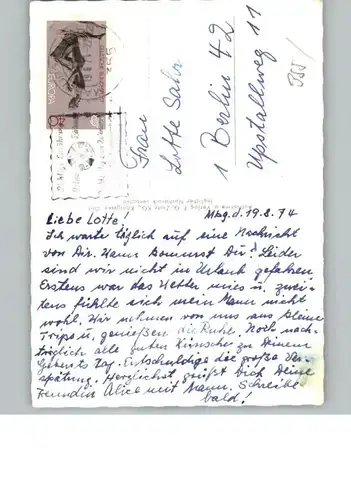 Frau
Lotte Sahr
1 Berlin 42
Upstallweg 11
Liebe Lotte!
Mbg. d. 19.8.74
Ich warte täglich auf eine Nachricht
von Dir. Wann kommst Du? Leider
sind wir nicht in Urlaub gefahren.
Erstens war das Wetter mies u. zwei-
tens fühlte sich mein Mann nicht
wohl. Wir nehmen von uns aus kleine
Trips u. genießen die Ruhe. Noch nach-
träglich alle guten Wünsche zu Deinem
Geburtstag. Entschuldige die große Ver-
spätung. Herzlichst grüßt Dich Deine
Freundin Alice mit Mann. Schreibe
bald!